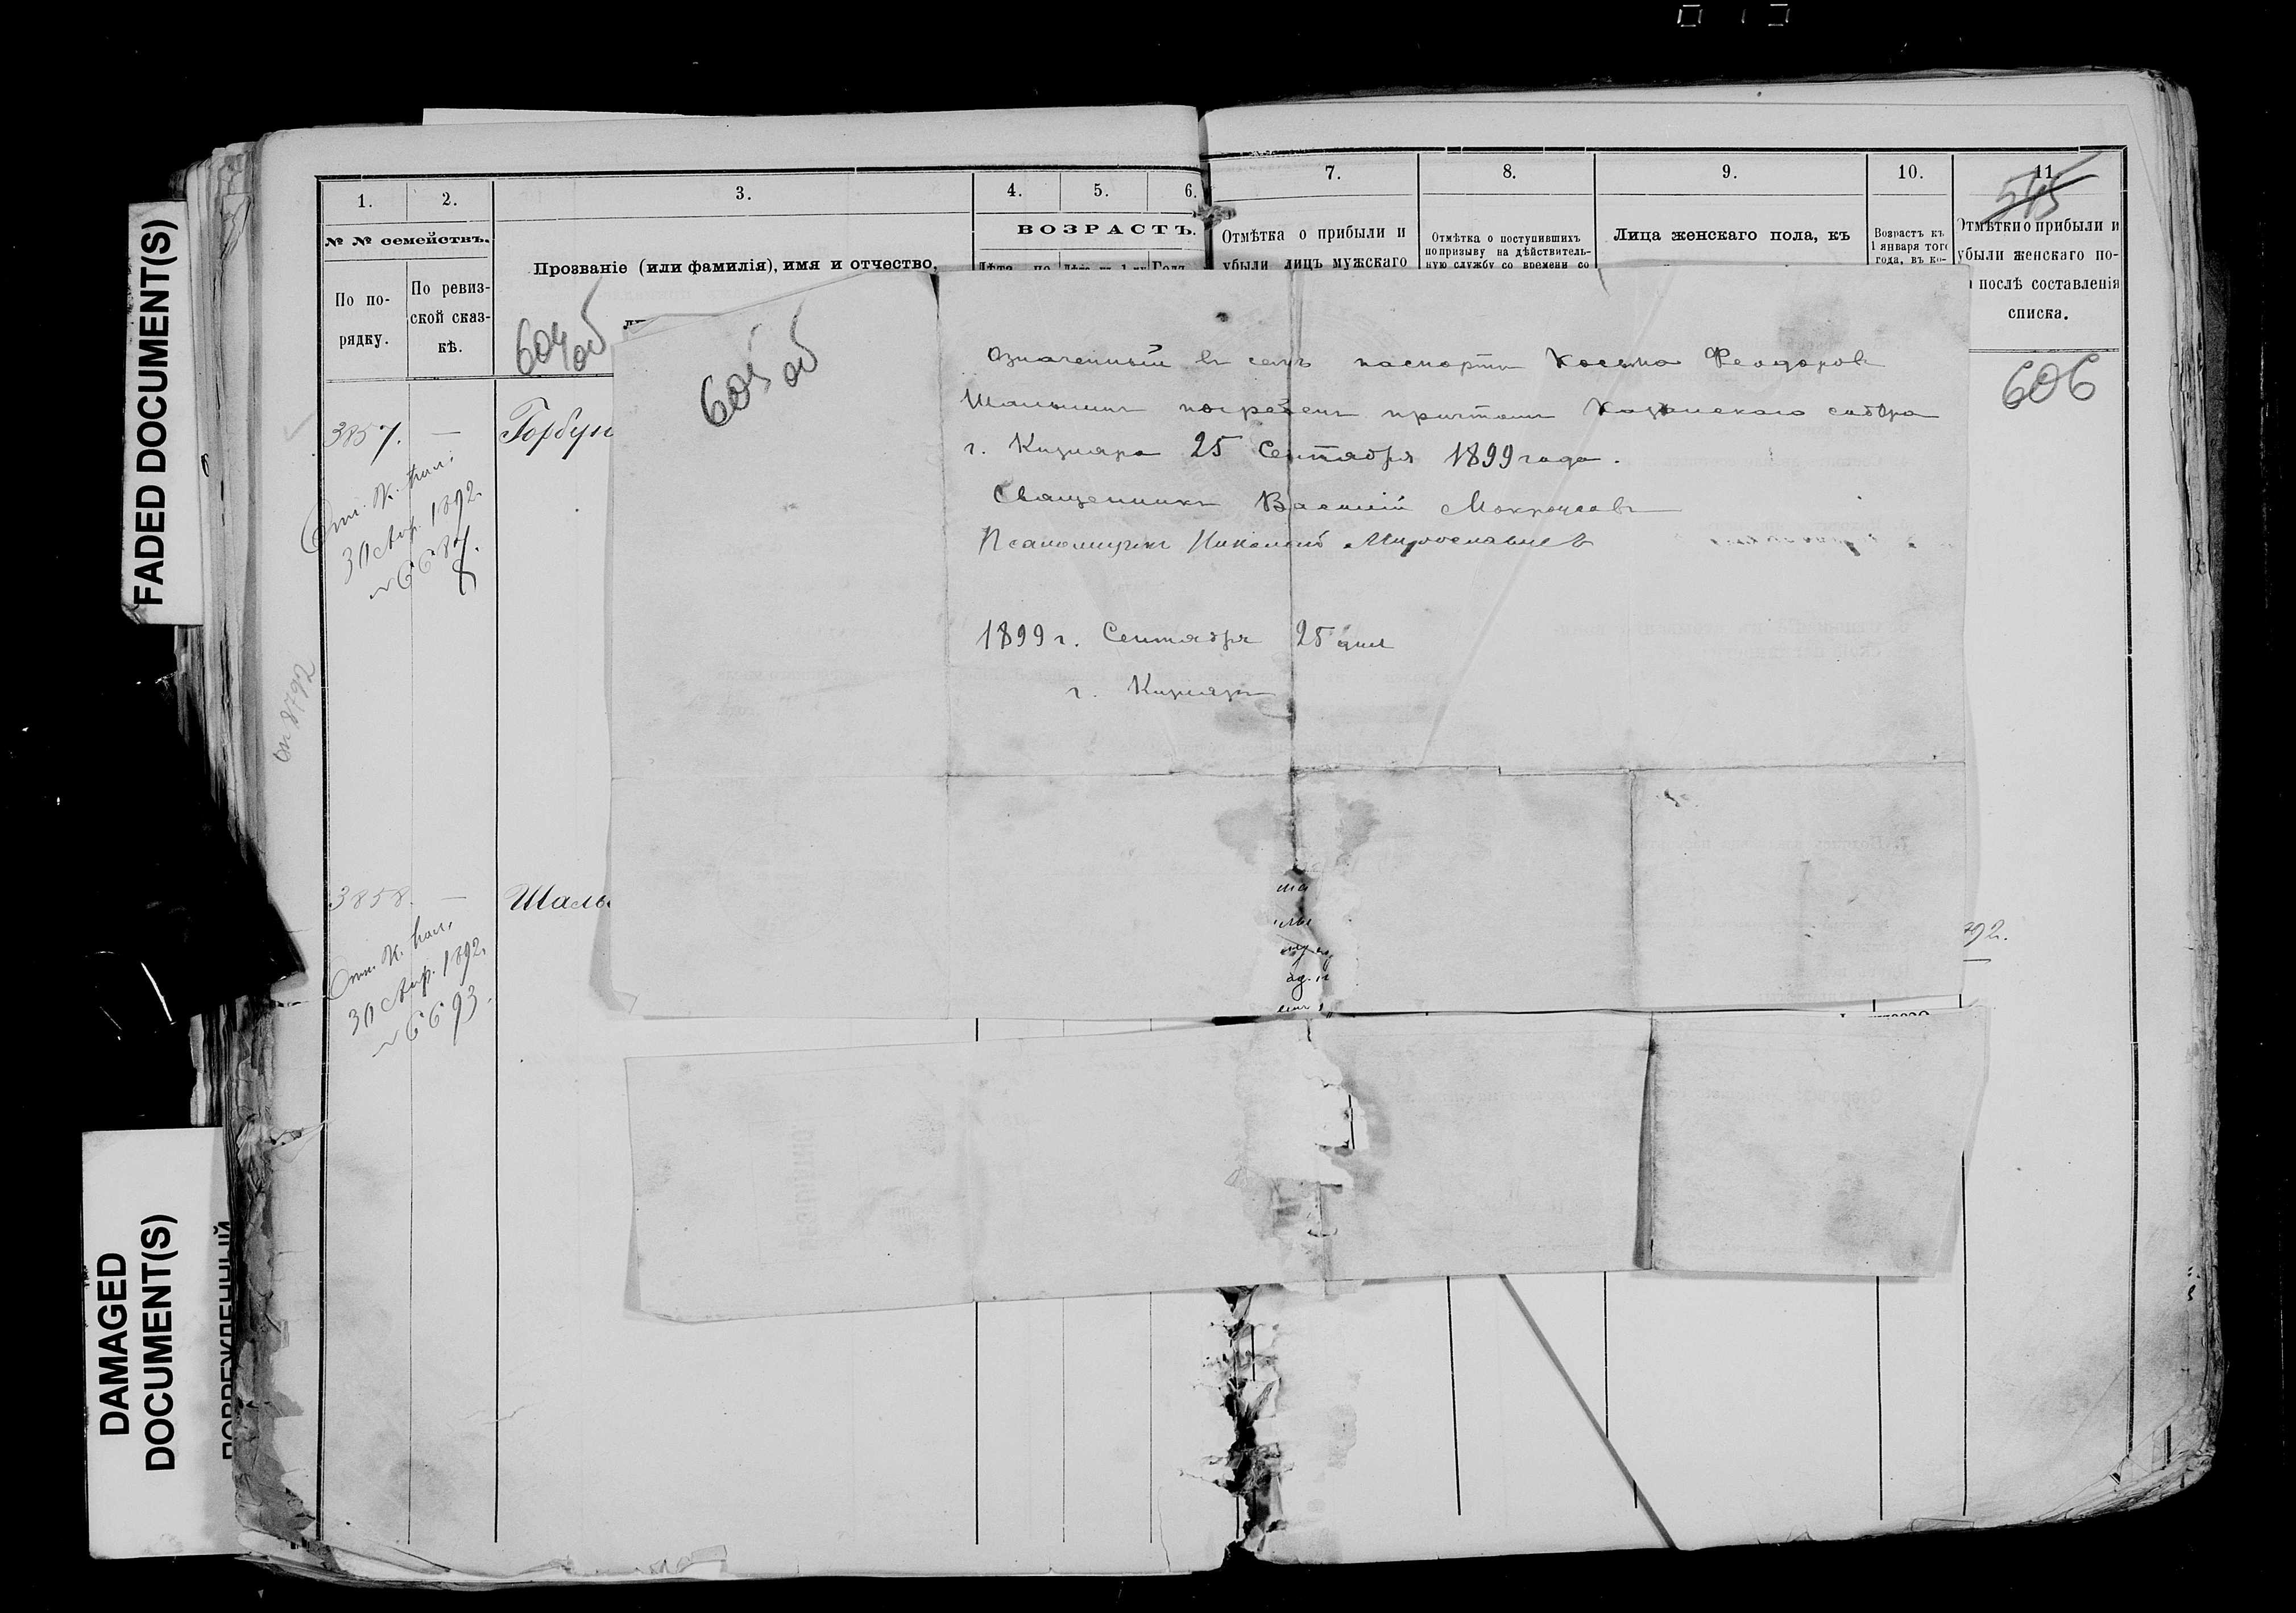 FADED DOCUMENT(S)
DAMAGED
DOCUMENT(S)
1.
2.
3.
4.
5.
6.
7.
8.
9.
10.
11.
545
№ № семействъ.
По по-
рядку.
По ревиз-
ской сказ-
кѣ.
Прозваніе (или фамилія), имя и отчество,
ВОЗРАСТЪ.
Отмѣтка о прибыли и
убыли лицъ мужскаго
Отмѣтка о поступившихъ
по призыву на дѣйствитель-
ную службу со времени со
Лица женскаго пола, къ
Возрастъ къ
1 января того
года, въ ко-
Отмѣтки о прибыли и
убыли женскаго по-
послѣ составленія
списка.
604 об
605 об
606
3857. —
Горбун
Отп. К. пал:
30 Апр. 1892.
№ 6687.
3858. —
Шаль
Отп. К. пал.
30 Апр. 1892.
№ 6693.
8792
Означенный въ семъ паспортѣ Косьма Феодоровъ
Шальнинъ погребенъ причтомъ Казанскаго собора
г. Кизляра 25 Сентября 1899 года.
Священникъ Василій
Псаломщикъ Николай
1899 г. Сентября 25 дня
г. Кизляръ
92.